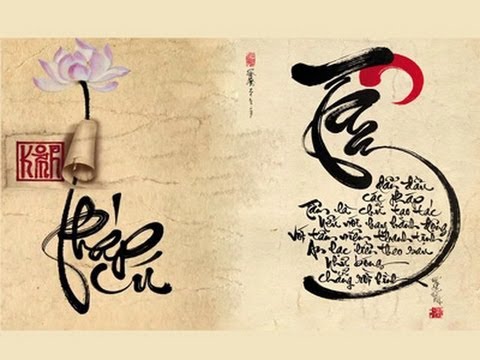 Kinh
Pháp
Cú
Tâm
dẫn đầu
các pháp
Tâm là chủ tạo tác
Nếu nói hay hành động
Với tâm niệm thanh tịnh
An lạc liền theo sau
Như bóng
chẳng rời hình